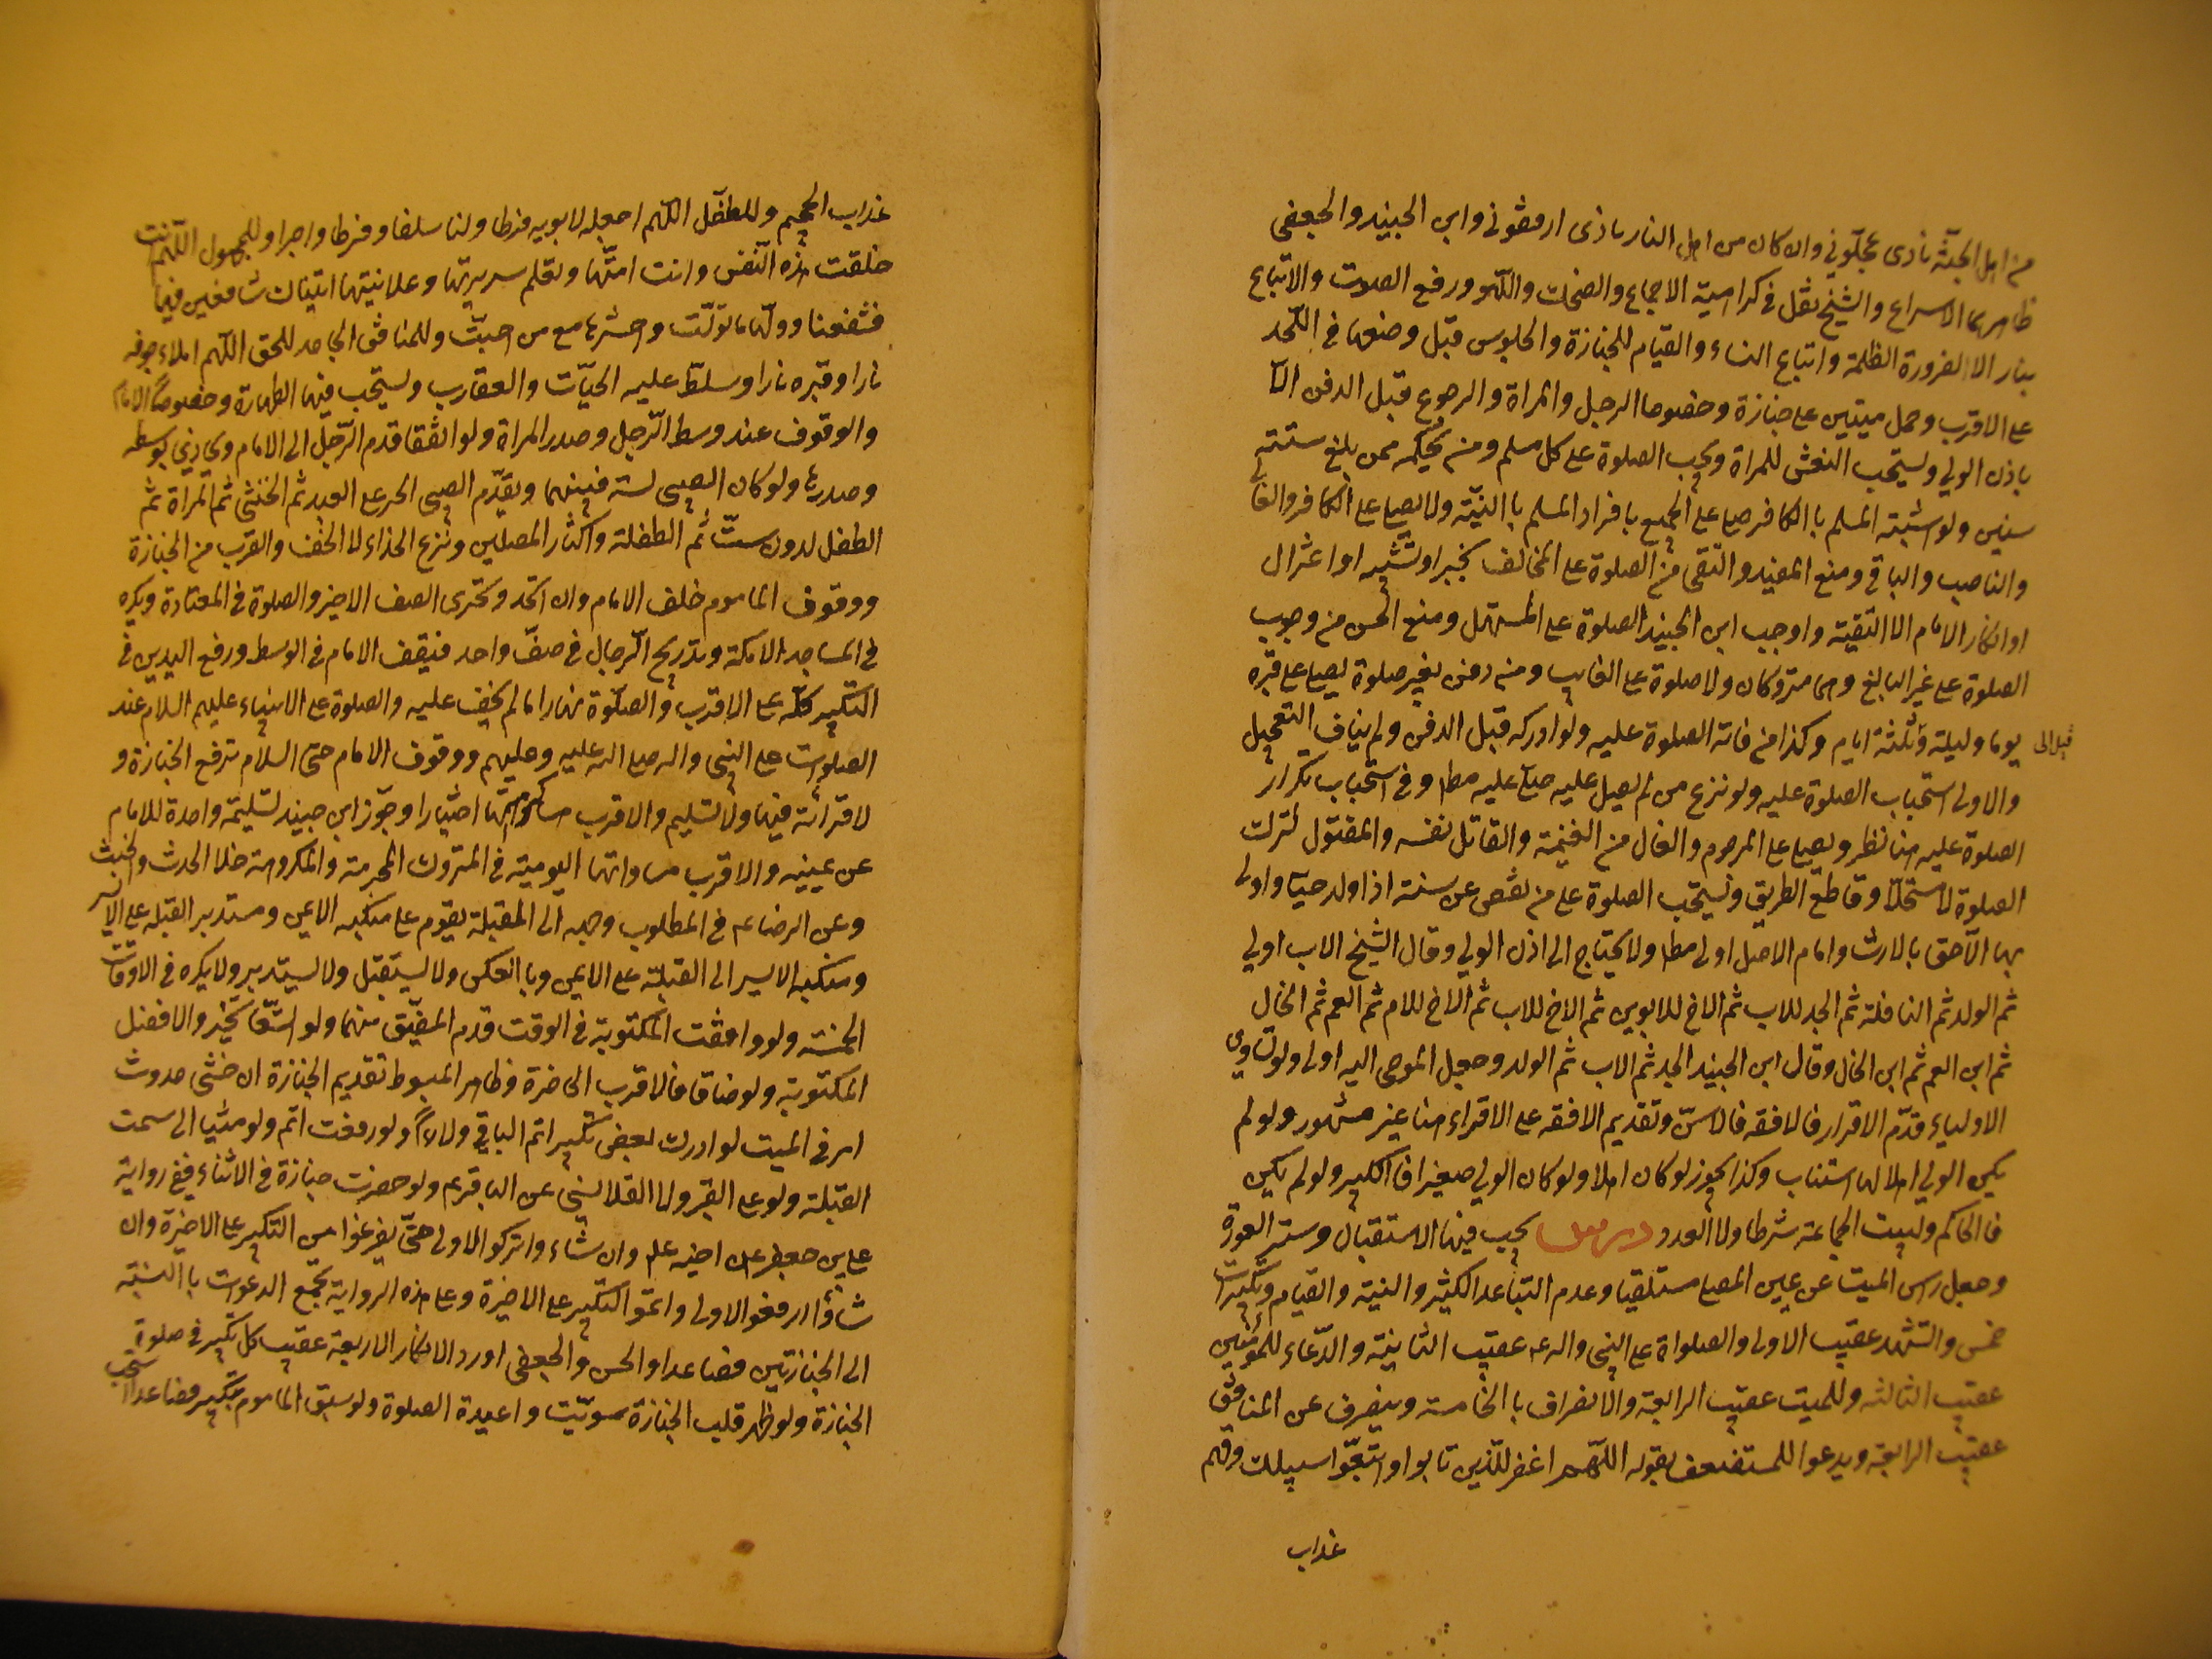 من اهل الجنّة نادى عجّلوني وان كان من اهل النار نادى ارفقوني وابن الجنيد والجعفي
ظاهرهما الاسراع والشيخ نقل في كراهية الاجماع والضحك واللّهو ورفع الصوت والاتباع
بنار الا لضرورة الظلمة واتباع النساء والقيام للجنازة والجلوس قبل وضعها في اللّحد
على الاقرب وحمل ميتين على جنازة وخصوصا الرجل والمراة والرجوع قبل الدفن الّا
باذن الولي ويستحب النعش للمراة ويجب الصلوة على كل مسلم ومن بحكمه ممن بلغ ستّة
سنين ولو اشتبه المسلم با الكافر صلى على الجميع بافراد المسلم با النيّة ولا يصلى على الكافر والغالي
والناصب والباقي ومنع المفيد والتقي من الصلوة على المخالف بجبر او تشبيه او اعتزال
او انكار الامام الا التقية واوجب ابن الجنيد الصلوة على المستهل ومنع الحسن من وجوب
الصلوة على غير البالغ وهي متروكان ولا صلوة على الغايب ومن دفن بغير صلوة يصلى على قبره
يوما وليلة وثلثة ايام وكذا من فاته الصلوة عليه ولو ادركه قبل الدفن ولم يناف التعجيل
قيل الى
والاولى استحباب الصلوة عليه ولو نزع من لم يصل عليه صلى عليه مط وفي استحباب تكرار
الصلوة عليه هنا نظر ويصلى على المرجوم والغال من الغنيمة والقاتل نفسه والمقتول لترك
الصلوة لا مستحلّا وقاطع الطريق ويستحب الصلوة على من نقص عن ستة اذا ولد حيّا واولى
بها الاحق بالارث وامام الاصل اولى مط ولا يحتاج الى اذن الولي وقال الشيخ الاب اولى
ثم الولد ثم النافلة ثم الجد للاب ثم الاخ للابوين ثم الاخ للاب ثم الاخ للام ثم العم ثم الخال
ثم ابن العم ثم ابن الخال وقال ابن الجنيد الجد ثم الاب ثم الولد وجعل الموصى اليه اولى ولو تساوى
الاولياء قدّم الاقرا فالافقه فالاسنّ وتقديم الافقه على الاقراء هنا غير مشهور ولو لم
يكن الولي اهلا لها استناب وكذا يجوز لو كان اهلا ولو كان الولي صغيرا فالكبير ولو لم يكن
فالحاكم وليست الجماعة شرطا ولا العدد درس يجب فيها الاستقبال وستر العورة
وجعل راس الميت عن يمين المصلي مستلقيا وعدم التباعد الكثير والنية والقيام وتكبيرات
خمس والتشهد عقيب الاولى والصلواة على النبي واله عقيب الثانية والدّعاء للمؤمنين
عقيب الثالثه وللميت عقيب الرابعة والانصراف با الخامسة وينصرف عن المنافق
عقيب الرابعة ويدعوا للمستضعف بقوله اللّهم اغفر للّذين تابوا واتبعّوا سبيلك وقهم
عذاب
عذاب الجحيم وللطفل اللّهم اجعله لابويه فرطا ولنا سلفا وفرطا واجرا وللمجهول اللّهم انت
خلقت هذه النّفس وانت امتّها وتعلم سريرتها وعلانيتها اتيناك شافعين فيها
فشفعنا وولّها ما تولّت واحشرها مع من احبّت وللمنافق الجاحد للحق اللّهم املاء جوفه
نارا وقبره نارا وسلط عليه الحيّات والعقارب ويستحب فيها الطهارة وخصوصاً الامام
والوقوف عند وسط الرّجل وصدر المراة ولو اتفقا قدم الرّجل الى الامام ويحاذي بوسطه
وصدرها ولو كان الصبي لستة فبينهما ويقدّم الصبي الحر على العبد ثم الخنثى ثم المراة ثم
الطفل لدون ستّ ثم الطفلة واكثار المصلين ونزع الحذاء لا الخف والقرب من الجنازة
ووقوف الماموم خلف الامام وان اتحد وتحرى الصف الاخير والصلوة في المعتادة ويكره
في المساجد الا مكة وتدريج الرّجال في صفّ واحد فيقف الامام في الوسط ورفع اليدين في
التكبير كلّه على الاقرب والصلوة نهارا ما لم يخف عليه والصلوة على الانبياء عليهم السلام عند
الصلوات على النبي واله صلى الله عليه وعليهم ووقوف الامام حتى السلام ترفع الجنازة و
لا قرائة فيها ولا تسليم والاقرب كراهيّتها اختيارا وجوّز ابن جنيد تسليمة واحدة للامام
عن يمينه والاقرب مساواتها اليومية في المتروك المحرمة والمكروهة خلا الحدث والخبث
وعن الرضا ع في المصلوب وجهه الى القبلة يقوم على منكبه الايمن ومستدبر القبلة على الايسر
ومنكبه الايسر الى القبلة على الايمن وبا العكس ولا يستقبل ولا يستدبر ولا يكره في الاوقات
الخمسة ولو وافقت المكتوبة في الوقت قدم المضيّق منهما ولو اتسّعا تخيّر والافضل
المكتوبة ولو ضاقا فالاقرب الحاضرة وظاهر المبسوط تقديم الجنازة ان خشي حدوث
امر في الميت لو ادرك بعض تكبير اتم الباقي ولاءً ولو رفعت اتم ولو مشيا الى سمت
القبلة ولو على القبر ولا القلانسي عن الباقر ع ولو حضرت جنازة في الاثناء ففي رواية
علي بن جعفر عن اخيه ع ان شاء وا تركوا الاولى حتّى يفرغوا من التكبير على الاخيرة وان
شاؤا رفعوا الاولى واتمّوا التكبير على الاخيرة وعلى هذه الرواية تجمّع الدعوات با النسبة
الى الجنازتين فصاعدا والحسن والجعفي اورد الاذكار الاربعة عقيب كل تكبير في صلوة
الجنازة ولو ظهر قلب الجنازة سويّت واعيدة الصلوة ولو سبق الماموم بتكبير فصاعدا استحب